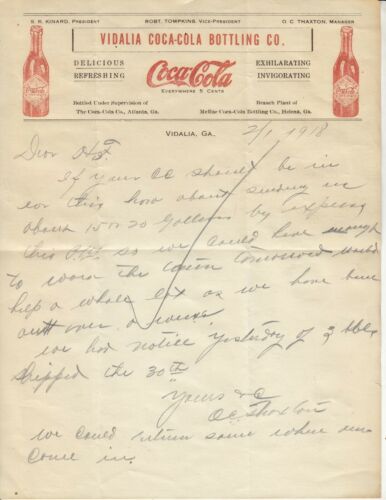 S. R. KINARD, PRESIDENT ROBT. TOMPKINS, VICE-PRESIDENT O. C. THAXTON, MANAGER
VIDALIA COCA-COLA BOTTLING CO.
DELICIOUS
REFRESHING
Coca-Cola
EVERYWHERE 5 CENTS
EXHILARATING
INVIGORATING
Bottled Under Supervision of
The Coca-Cola Co., Atlanta, Ga.
Branch Plant of
McRae Coca-Cola Bottling Co., Helena, Ga.
VIDALIA, GA., 2/1 1918
Dear
If your CC should be in
for this how about sending me
about 15 or 20 Gallons by express
this P.M. so we could have enough
to work the town tomorrow would
help a whole lot as we have been
out over a week.
We had notice yesterday of 3 bbls
shipped the 30th
Yours &C
O.C. Thaxton
We could return some when ours
come in.